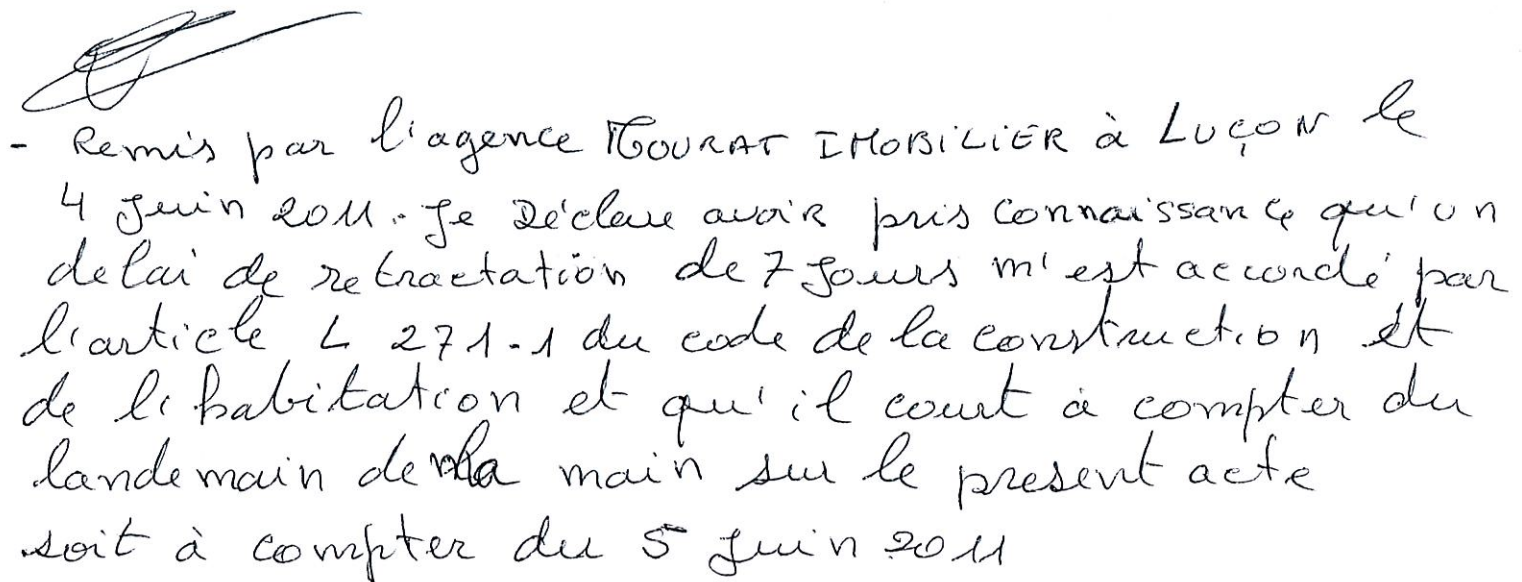 - Remis par l'agence MOURAT IMOBILIER à LUÇON le
4 Juin 2011. Je Déclare avoir pris connaissance qu'un
delai de retractation de 7 Jours m'est accordé par
l'article L 271.1 du code de la construction et
de l'habitation et qu'il court à compter du
landemain de la main sur le present acte
soit à compter du 5 Juin 2011